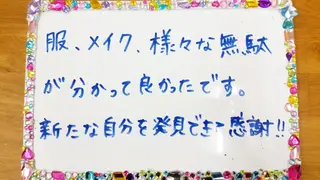 服、メイク、様々な無駄
が分かって良かったです。
新たな自分を発見できて感謝!!